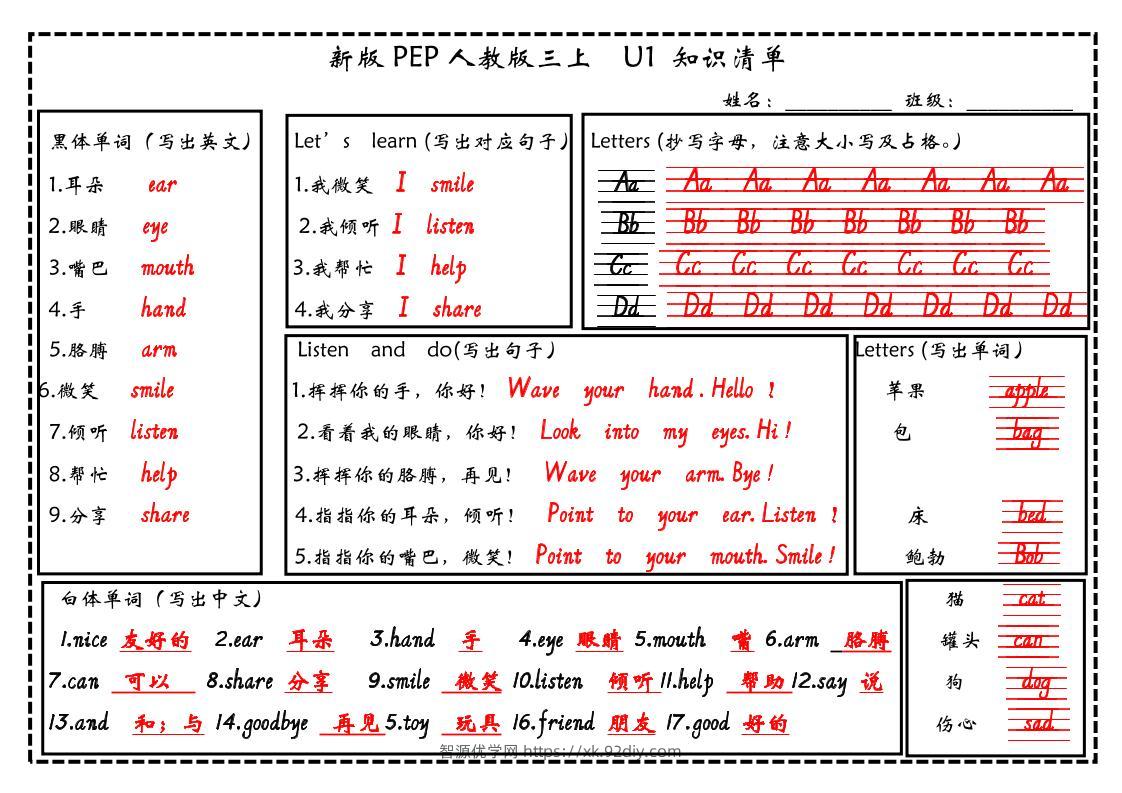 新版 PEP 人教版三上 U1 知识清单
姓名： 班级：
黑体单词（写出英文）
1.耳朵 ear
2.眼睛 eye
3.嘴巴 mouth
4.手 hand
5.胳膊 arm
6.微笑 smile
7.倾听 listen
8.帮忙 help
9.分享 share
Let's learn (写出对应句子)
1.我微笑 I smile
2.我倾听 I listen
3.我帮忙 I help
4.我分享 I share
Letters (抄写字母，注意大小写及占格。)
Aa Aa Aa Aa Aa Aa Aa Aa
Bb Bb Bb Bb Bb Bb Bb Bb
Cc Cc Cc Cc Cc Cc Cc Cc
Dd Dd Dd Dd Dd Dd Dd Dd
Listen and do(写出句子)
1.挥挥你的手，你好！ Wave your hand. Hello !
2.看着我的眼睛，你好！ Look into my eyes. Hi !
3.挥挥你的胳膊，再见！ Wave your arm. Bye !
4.指指你的耳朵，倾听！ Point to your ear. Listen !
5.指指你的嘴巴，微笑！ Point to your mouth. Smile !
Letters (写出单词)
苹果 apple
包 bag
床 bed
鲍勃 Bob
猫 cat
罐头 can
狗 dog
伤心 sad
白体单词（写出中文）
1.nice 友好的 2.ear 耳朵 3.hand 手 4.eye 眼睛 5.mouth 嘴 6.arm 胳膊
7.can 可以 8.share 分享 9.smile 微笑 10.listen 倾听 11.help 帮助 12.say 说
13.and 和；与 14.goodbye 再见 5.toy 玩具 16.friend 朋友 17.good 好的
智源优学网 https://xk.92diy.com/